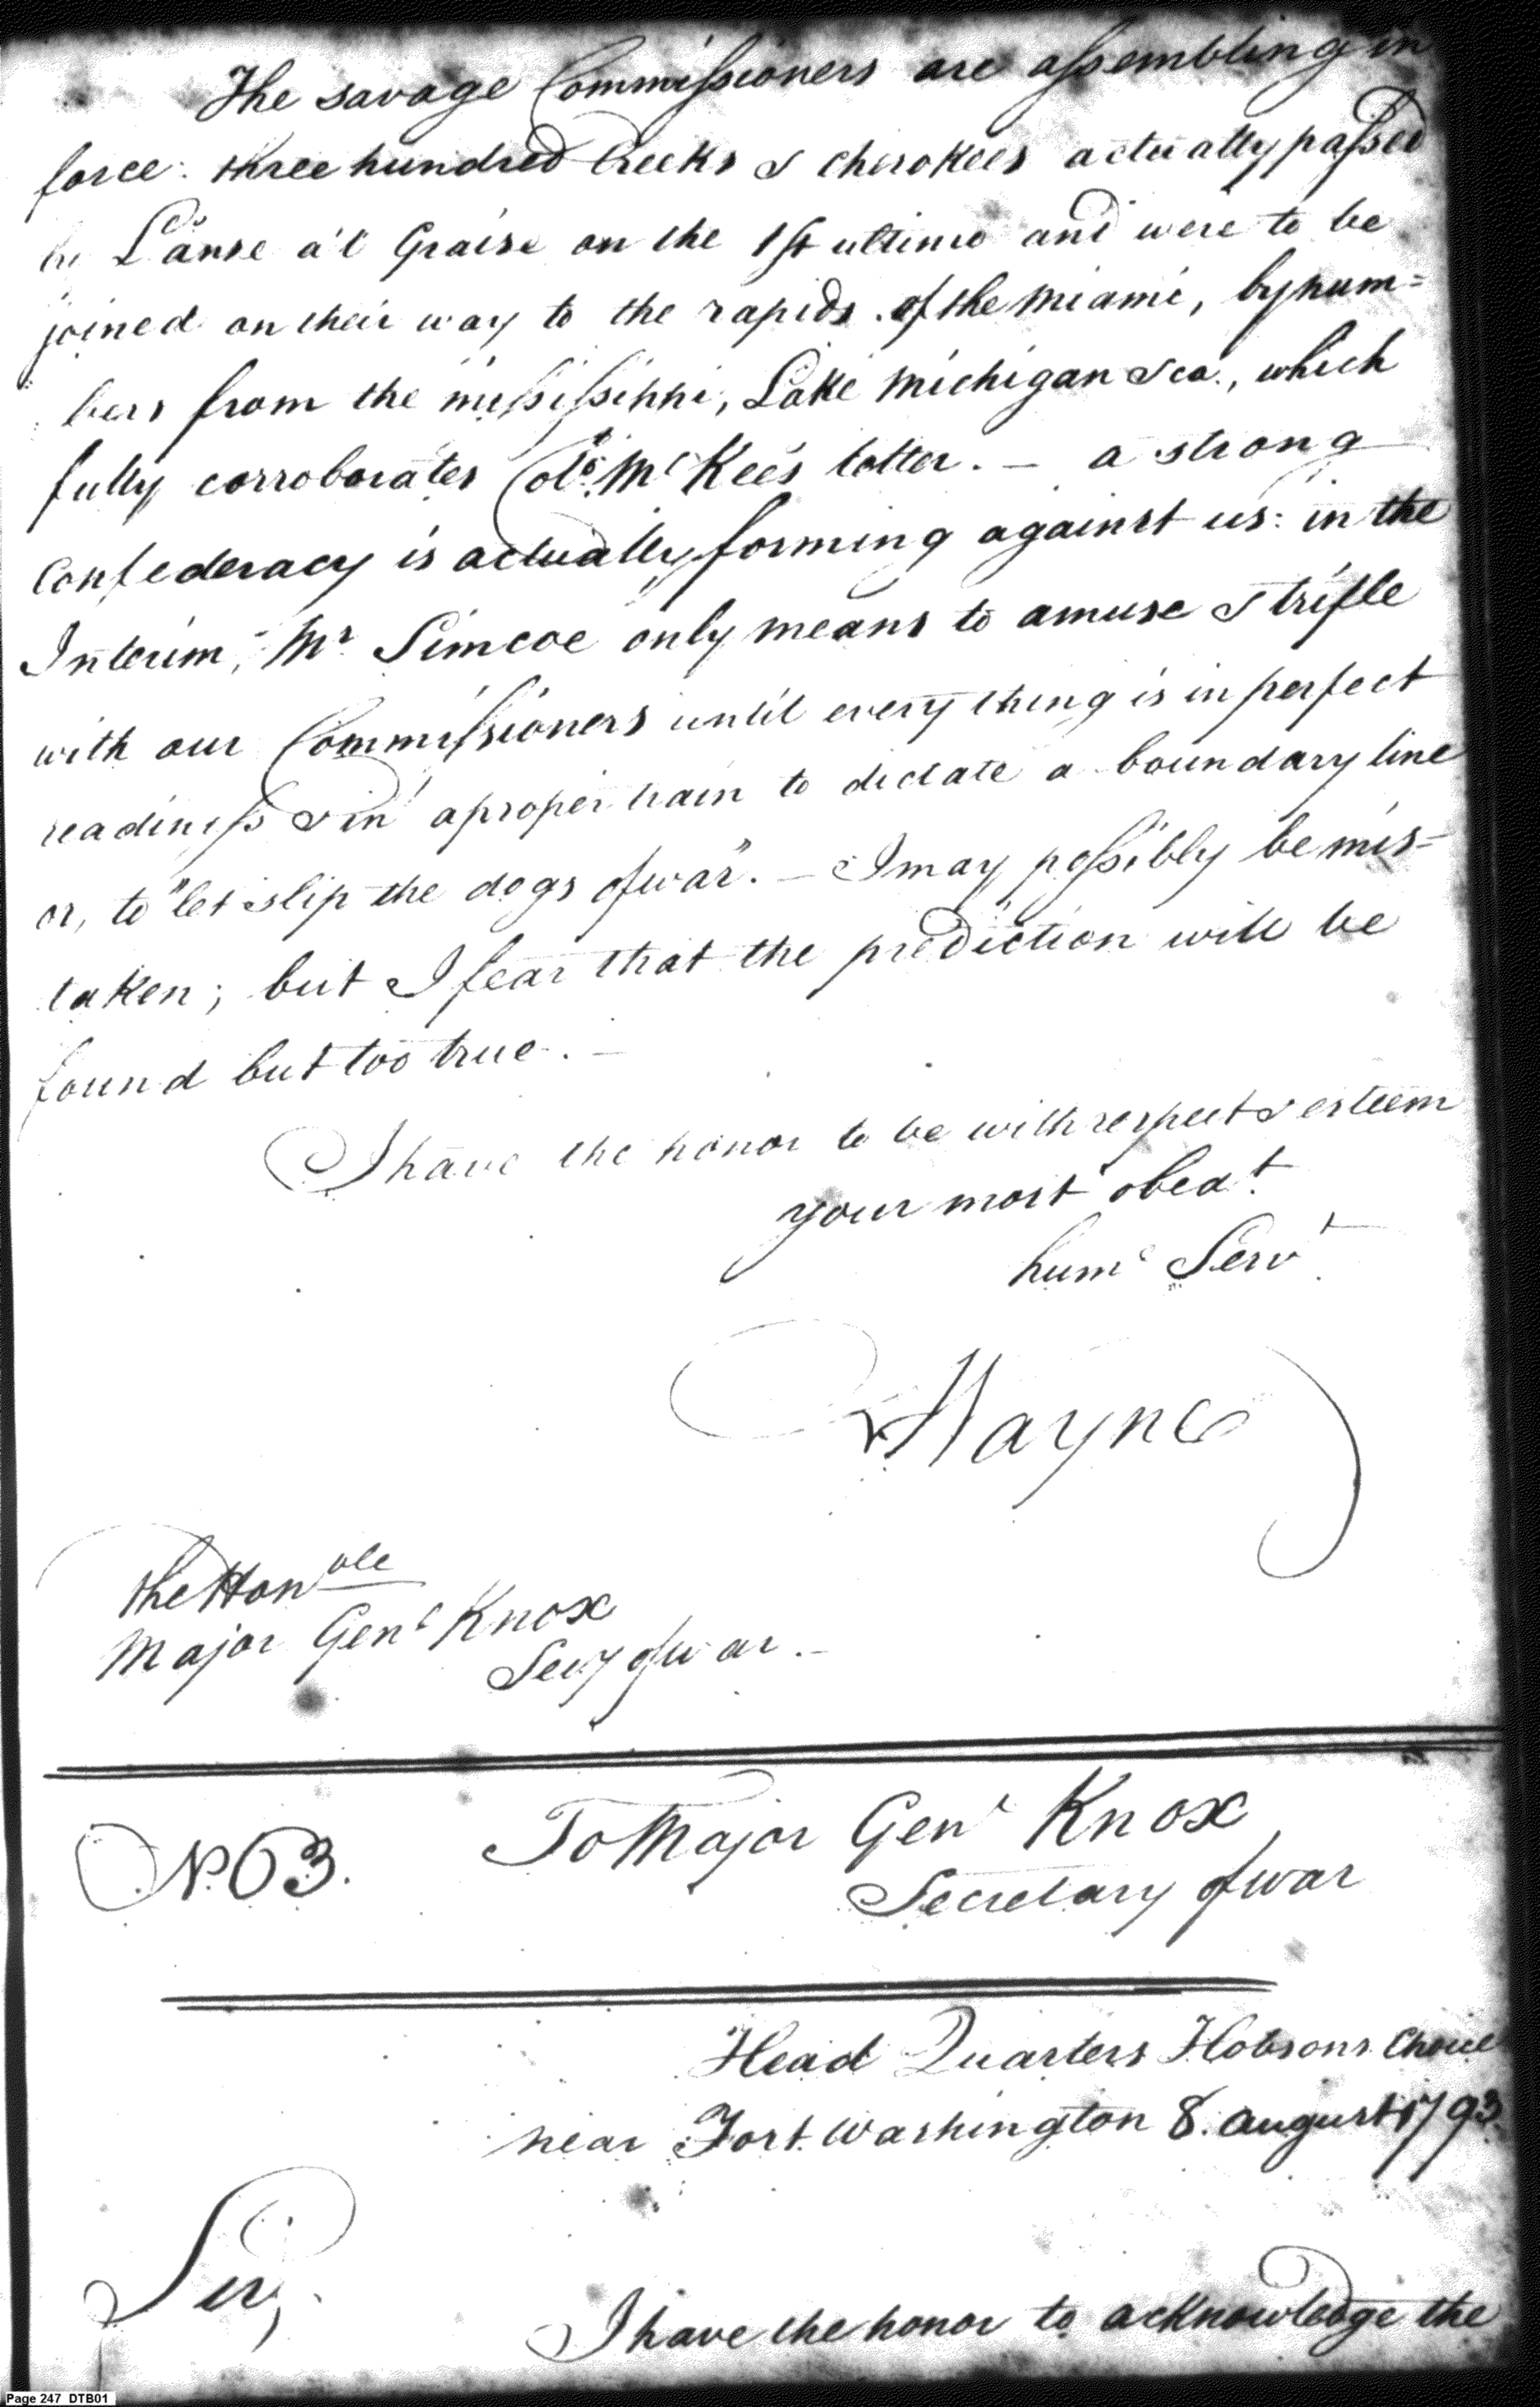 The savage Commissioners are assembling in
force: three hundred Creeks & cherokees actually passed
by L'anse a'l Graise on the 1st ultimo and were to be
joined on their way to the rapids of the Miami, by num=
bers from the missisippi, Lake Michigan &ca., which
fully corroborates Colo. McKee's letter. — a strong
Confederacy is actually forming against us: in the
Interim, Mr Simcoe only means to amuse & trifle
with our Commissioners until every thing is in perfect
readiness & in a proper train to dictate a boundary line
or, to "let slip the dogs of war". — I may possibly be mis=
taken; but I fear that the prediction will be
found but too true. —
I have the honor to be with respect & esteem
your most obedt.
hume Servt.
Wayne
The Honble
Major Genl Knox
Secy of war. —
No. 63. To Major Genl Knox,
Secretary of war
Head Quarters Hobsons Choice
near Fort Washington 8. August 1793
Sir,
I have the honor to acknowledge the
Page 247 DTB01